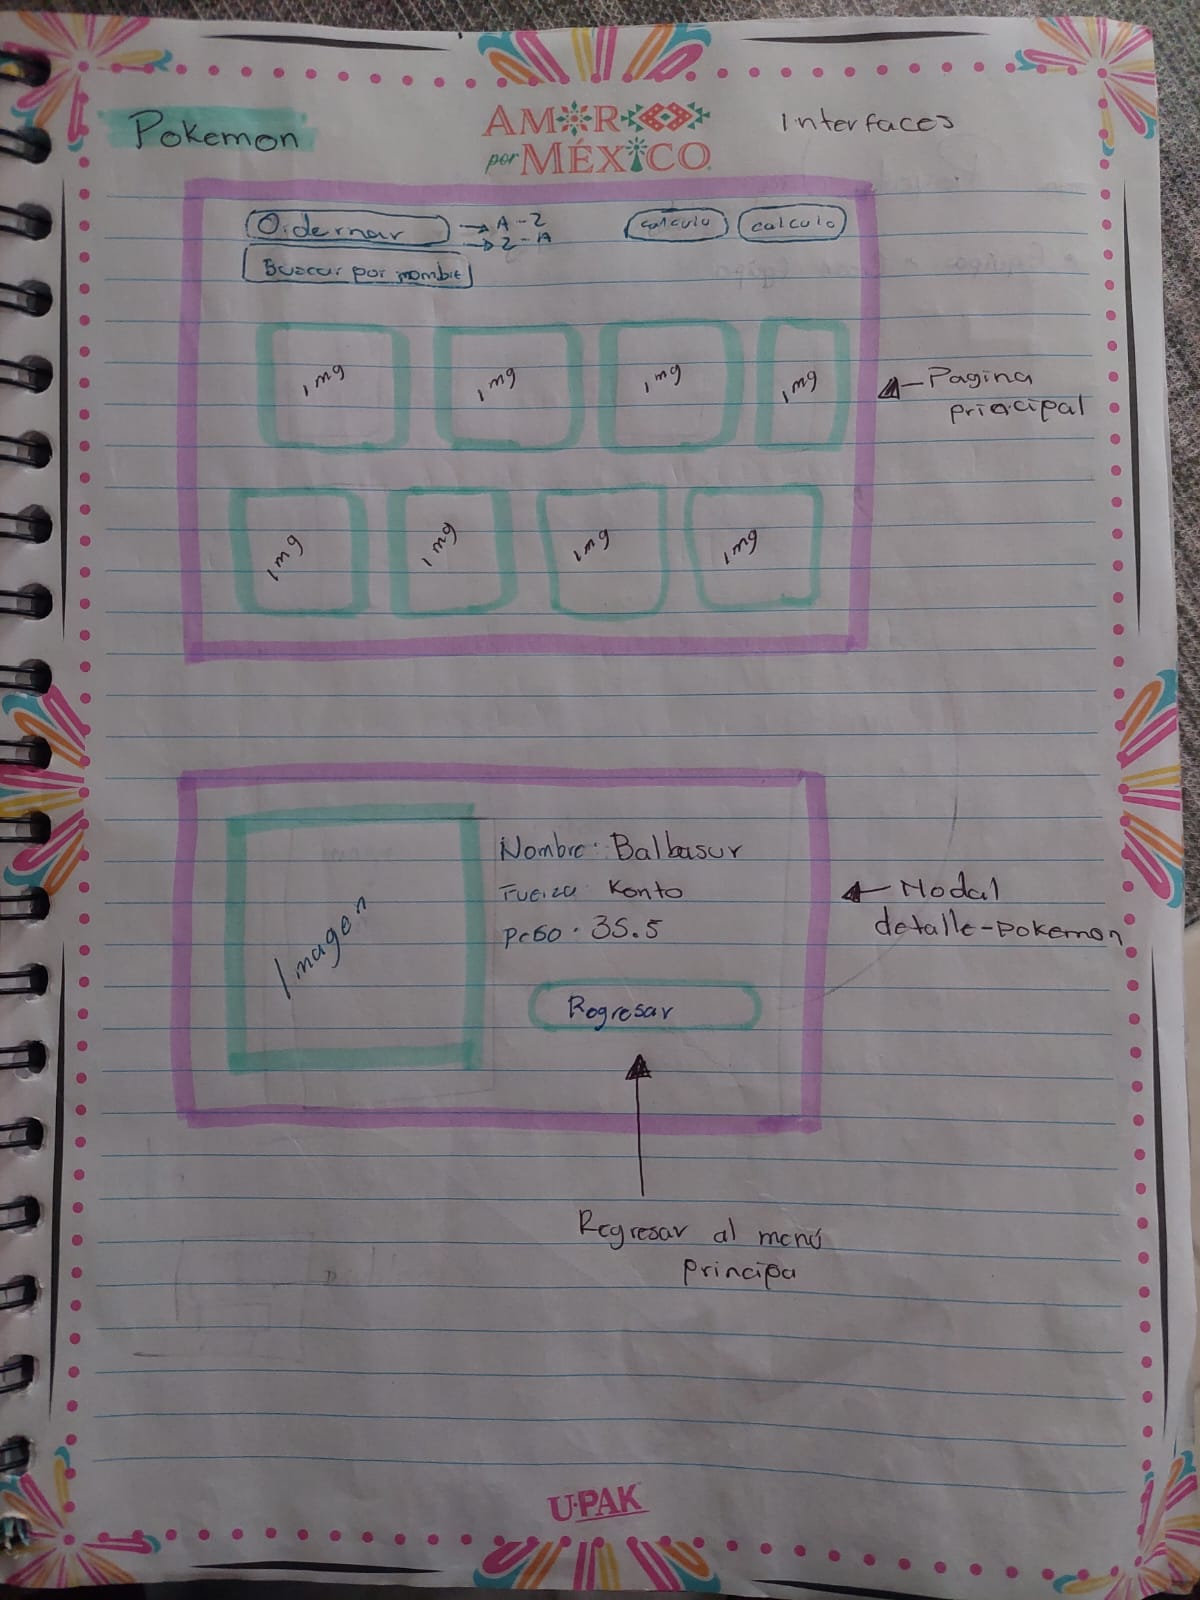 Pokemon
AMOR
por MÉXICO
Interfaces
Oidernar
→ A-Z
→ Z-A
calculo
calculo
Buscar por nombre
img
img
img
img
← Pagina
principal
img
img
img
img
Imagen
Nombre: Balbasur
Fuerza Konto
peso · 35.5
Regresar
← Modal
detalle-pokemon
Regresar al menú
principa
U·PAK